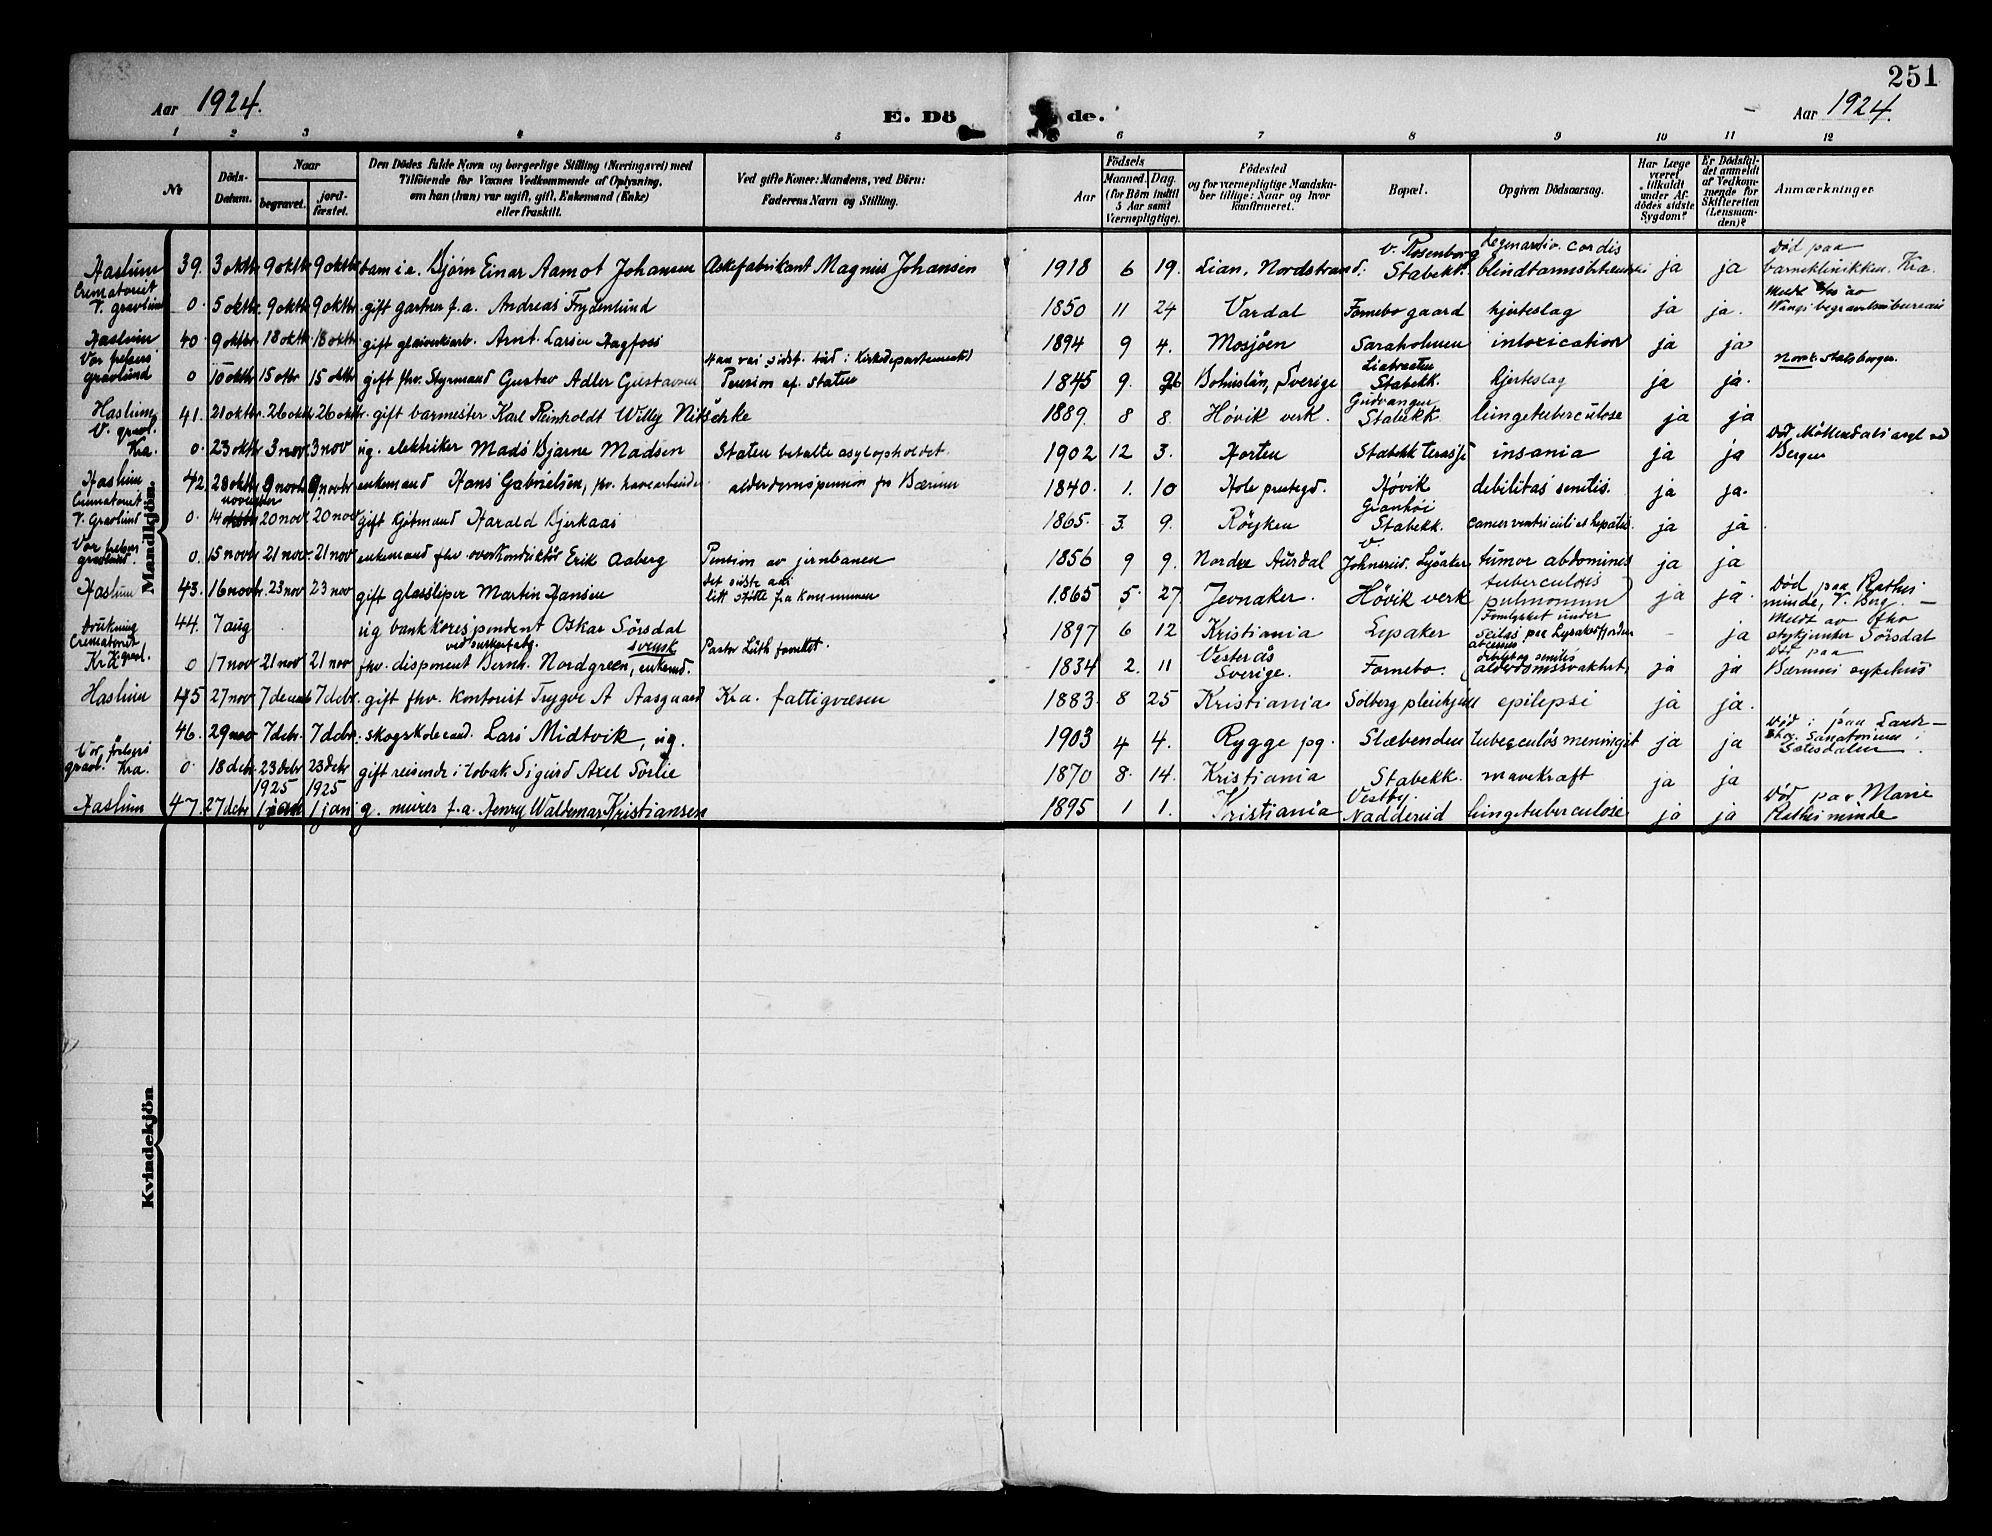 251
Aar 1924.
E. Dö de.
Aar 1924.
1 2 3 4 5 6 7 8 9 10 11 12
No
Döds-Datum.
Naar
begravet.
jord-fæstet.
Den Dödes fulde Navn og borgerlige Stilling (Næringsvei) med
Tilföiende for Voxnes Vedkommende af Oplysning,
om han (hun) var ugift, gift, Enkemand (Enke)
eller fraskilt.
Ved gifte Koner: Mandens, ved Börn:
Faderens Navn og Stilling.
Aar
Födsels
Maaned. Dag.
(for Börn indtil
5 Aar samt
Værnepligtige).
Födested
og for værnepligtige Mandska-
ber tillige: Naar og hvor
konfirmeret.
Bopæl.
Opgiven Dödsaarsag.
Har Læge
været
tilkaldt
under Af-
dödes sidste
Sygdom?
Er Dödsfal-
det anmeldt
af Vedkom-
mende for
Skifteretten
(Lensman-
den)?
Anmærkninger
Mandkjön.
Haslum 39. 3 oktb 9 oktb 9 oktb Bjørn Einar Aamot Johansen Askefabrikant Magnus Johansen 1918 6 19. Lian, Nordstrand. v. Rosenborg Stabekk. cordis ja ja Død paa barneklinikken, Kra.
Crematoriet V. gravlund 0. 5 oktb. 9 oktb. 9 oktb. gift gartner f.a. Andreas Frydenlund 1850 11 24 Vardal Fornebo gaard hjerteslag ja ja. Meldt av Wangs begravelsesbureau
Haslum 40. 9 oktbr 18 oktb 18 oktb. gift Arnt Larsen Hagfoss 1894 9 4. Mosjøen Saraholmen intoxication ja ja
Vor frelsers gravlund 0 10 oktb 15 otbr 15 oktb gift fhv. Styrmand Gustav Adler Gustavsen Han var sidst bud i Kirkedepartementet) Pension af staten 1845 9. 26 Bohuslän, Sverige Stabekk. hjerteslag ja ja. Norsk Statsborger.
Haslum 41. 21 oktb. 26 oktb 26 oktb. gift Karl Reinholdt Willy Nitschke 1889. 8 8. Høvik verk. Gudvangen Stabekk lungetuberculose ja ja
V. gravl. Kra. 0. 23 oktb 3 nov. 3 nov ug. elektriker Mads Bjarne Madsen Staten betalte asylopholdet. 1902 12 3. Horten Stabekk terasse insania ja ja Død Møllendals asyl ved Bergen
Haslum 42. 28 oktb 9 novb 9 novb enkemand Hans Gabrielsen, fhv. havearbeider alderdomspension fra Bærum 1840. 1. 10 Hole prestegd. Høvik debilitas senilis. ja ja.
Crematoriet V. Gravlund 0. november 14 oktb 20 nov. 20 nov gift kjøbmand Harald Bjerkaas 1865. 3. 9. Røyken Granhøi Stabekk. cancer ventriculi et hepatis. ja ja
Vor frelsers gravlund. 0. 15 novb 21 nov 21 nov enkemand fhv overkonduktør Erik Aaberg Pension av jernbanen 1856 9 9. Nordre Aurdal v. Lysaker tumor abdomines ja ja
Haslum 43. 16 novb. 23 nov 23 nov gift glassliper Martin Hansen det sidste aar litt støtte fra kommunen 1865 5. 27. Jevnaker. Høvik verk tuberculosis pulmonum ja ja. Død paa Rathes minde, V. Berg.
Drukning 44. 7 aug ug bankkorrespondent Oskar Sörsdal 1897 6 12 Kristiania Lysaker Forulykket under seilas paa Lysakerfjorden - ja Meldt av Sörsdal
Crematoriet Kr. gravl. 0 17 nov 21 nov 21 nov fhv. disponent Bernh. Nordgreen, enkemd. svensk Pastor Lüth forrettet. 1834 2. 11 Vesterås Sverige. Fornebo. debilitas senilis alderdomssvakhet ja ja Død paa Bærums sykehus
Haslum 45 27 nov 7 7 debr. gift fhv. kontorist Trygve A Aasgaard Kra. fattigvæsen 1883 8 25 Kristiania Solberg pleiehjem epilepsi ja ja.
46. 29 nov 7 debr. 7 debr. Lars Midtvik, ug. 1903 4 4. Rygge pg. Slæbenden tuberculös meningit ja ja Død: paa Sanatorium i Setesdalen
Vor frelsers gravl. Kra. 0. 18 debr. 23 debr 23 debr gift reisende i tobak Sigurd Axel Sørlie 1870 8. 14. Kristiania Stabekk. mavekræft ja ja
1925 1925
Haslum 47. 27 debr 1 jan 1 jan g. murer f.a. Henry Waldemar Kristiansen 1895 1 1. Kristiania Vestby, Nadderud lungetuberculose ja ja Død paa Marie Rathes minde
Kvindekjön